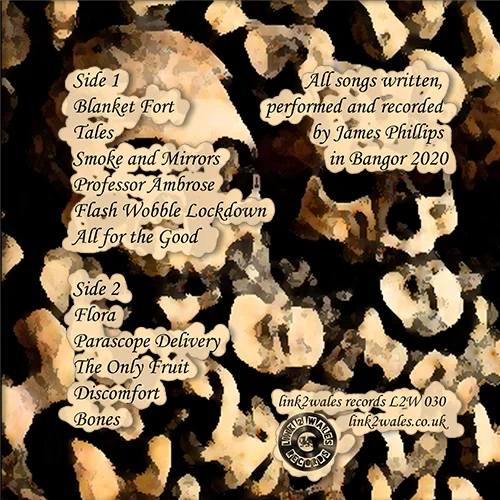 Side 1
Blanket Fort
Tales
Smoke and Mirrors
Professor Ambrose
Flash Wobble Lockdown
All for the Good
Side 2
Flora
Parascope Delivery
The Only Fruit
Discomfort
Bones
All songs written,
performed and recorded
by James Phillips
in Bangor 2020
link2wales records L2W 030
link2wales.co.uk
LINK2 WALES
RECORDS